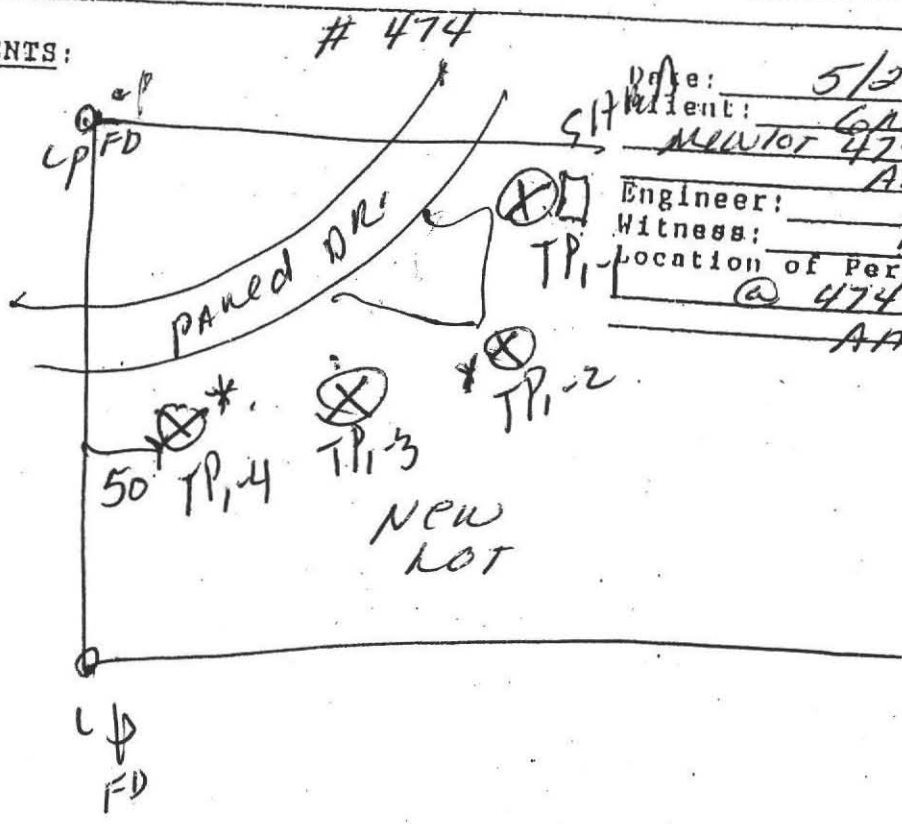 # 474
NTS:
Date: 5/2
Client: GA
New Lot 47
A
Engineer:
Witness:
Location of Per
@ 474
AA
LP FD
PAved DR.
TP,-1
* TP,-2
TP,-3
TP,-4 *
50
New
Lot
LP
FD